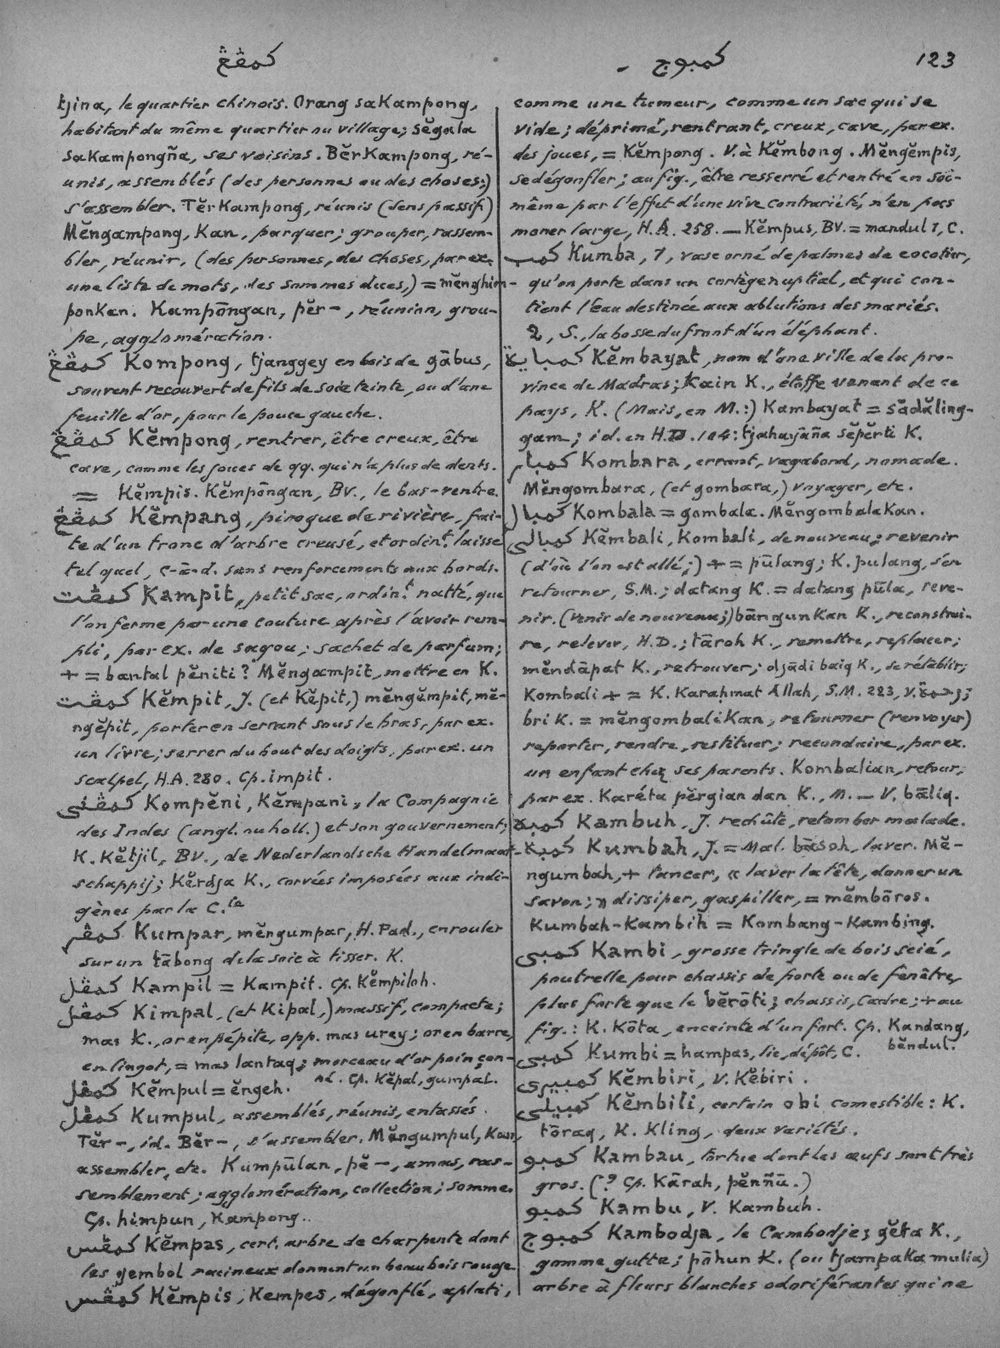 كمڤڠ
كمبوج
123
tjina, le quartier chinois. Orang sakampong,
habitant du même quartier ou village; sĕgala
sakampongña, ses voisins. Bĕrkampong, ré-
unis, assemblés (des personnes ou des choses;)
s'assembler. Tĕrkampong, réunis (sens passif)
Mĕngampong, Kan, parquer; grouper, rassem-
bler, réunir, (des personnes, des choses, par ex.
une liste de mots, des sommes dues,) = mĕnghim-
ponkan. Kampōngan, pĕr-, réunion, grou-
pe, agglomération.
كمڤڠ Kompong, tjanggey en bois de gābus,
souvent recouvert de fils de soie teinte, ou d'une
feuille d'or, pour le pouce gauche.
كمڤڠ Kĕmpong, rentrer, être creux, être
cave, comme les joues de qq. qui n'a plus de dents.
= Kĕmpis. Kĕmpōngan, BV., le bas-ventre.
كمڤڠ Kĕmpang, pirogue de rivière, fai-
te d'un tronc d'arbre creusé, et ordint laissé
tel quel, c-à-d. sans renforcements aux bords.
كمڤت Kampit, petit sac, ordin.t natté, que
l'on ferme par une couture après l'avoir rem-
pli, par ex. de sagou; sachet de parfum;
+ = bantal pĕniti? Mĕngampit, mettre en K.
كمڤت Kĕmpit, J. (et Kĕpit,) mĕngĕmpit, mĕ-
ngĕpit, porter en serrant sous le bras, par ex.
un livre; serrer du bout des doigts, par ex. un
scalpel, H.A. 280. Cp. impit.
كمڤني Kompĕni, Kĕmpani, la Compagnie
des Indes (angl. ou holl.) et son gouvernement;
K. Kĕtjil, BV., de Nederlandsche Handelmaat-
schappij; Kĕrdja K., corvées imposées aux indi-
gènes par la C.ie
كمڤر Kumpar, mĕngumpar, H. Pad., enrouler
sur un tābong de la soie à tisser. K.
كمڤل Kampil = Kampit. Cp. Kĕmpiloh.
كمڤل Kimpal, (et Kipal,) massif, compacte;
mas K., or en pépite, opp. mas urey; or en barre,
en lingot, = mas lantaq; morceau d'or poinçon-
né. Cp. Kĕpal, gumpal.
كمڤل Kĕmpul = ĕngeh.
كمڤل Kumpul, assemblés, réunis, entassés.
Tĕr-, id. Bĕr-, s'assembler. Mĕngumpul, Kan,
assembler, etc. Kumpūlan, pĕ-, amas, ras-
semblement; agglomération, collection; somme.
Cp. himpun, Kampong.
كمڤس Kĕmpas, cert. arbre de charpente dont
les gembol racineux donnent un beau bois rouge
كمڤس Kĕmpis, Kempes, dégonflé, aplati,
comme une tumeur, comme un sac qui se
vide; déprimé, rentrant, creux, cave, par ex.
des joues, = Kĕmpong. V. à Kĕmbong. Mĕngĕmpis,
se dégonfler; au fig., être resserré et rentré en soi-
même par l'effet d'une vive contrariété, n'en pas
mener large, H.A. 258. — Kĕmpus, BV. = mandul 1, C.
كمب Kumba, 1, vase orné de palmes de cocotier,
qu'on porte dans un cortège nuptial, et qui con-
tient l'eau destinée aux ablutions des mariés.
2, S., la bosse du front d'un éléphant.
كمباية Kĕmbayat, nom d'une ville de la pro-
vince de Madras; Kain K., étoffe venant de ce
pays, K. (Mais, en M.:) Kambayat = sādăling-
gam; id. en H.D. 104: tjahayāña sĕpĕrti K.
كمبار Kombara, errant, vagabond, nomade.
Mĕngombara, (et gombara,) voyager, etc.
كمبال Kombala = gombala. Mĕngombalakan.
كمبالي Kĕmbali, Kombali, de nouveau; revenir
(d'où l'on est allé;) + = pūlang; K. pulang, s'en
retourner, S.M.; datang K. = datang pūla, reve-
nir. (venir de nouveau;) bāngunkan K., reconstrui-
re, relever, H.D.; tāroh K., remettre, replacer;
mĕndāpat K., retrouver; djādi baiq K., se rétablir;
Kombali + = K. Karaḥmat Allah, S.M. 223, V. رحمة;
bri K. = mĕngombalikan, retourner (renvoyer)
reporter, rendre, restituer; reconduire, par ex.
un enfant chez ses parents. Kombalian, retour,
par ex. Karéta pĕrgian dan K., M. — V. bāliq.
كمبه Kambuh, J. rechûte, retomber malade.
كمبه Kumbah, J. = Mal. bāsoh, laver. Mĕ-
ngumbah, + tancer, « laver la tête, donner un
savon; » dissiper, gaspiller, = mĕmbōros.
Kumbah-Kambih = Kombang-Kambing.
كمبي Kambi, grosse tringle de bois scié,
poutrelle pour chassis de porte ou de fenêtre,
plus forte que le bĕrōti; chassis, cadre; + au
fig.: K. Kōta, enceinte d'un fort. Cp. Kandang,
bĕndul.
كمبي Kumbi = hampas, lie, dépôt, C.
كمبيري Kĕmbiri, V. Kĕbiri.
كمبيلي Kĕmbili, certain obi comestible: K.
tōraq, K. Kling, deux variétés.
كمبو Kambau, tortue dont les œufs sont très
gros. (? Cp. Kārah, pĕnñū.)
كمبو Kambu, V. Kambuh.
كمبوج Kambodja, le Cambodje; gĕta K.,
gomme gutte; pōhun K. (ou tjampaka mulia)
arbre à fleurs blanches odoriférantes qui ne